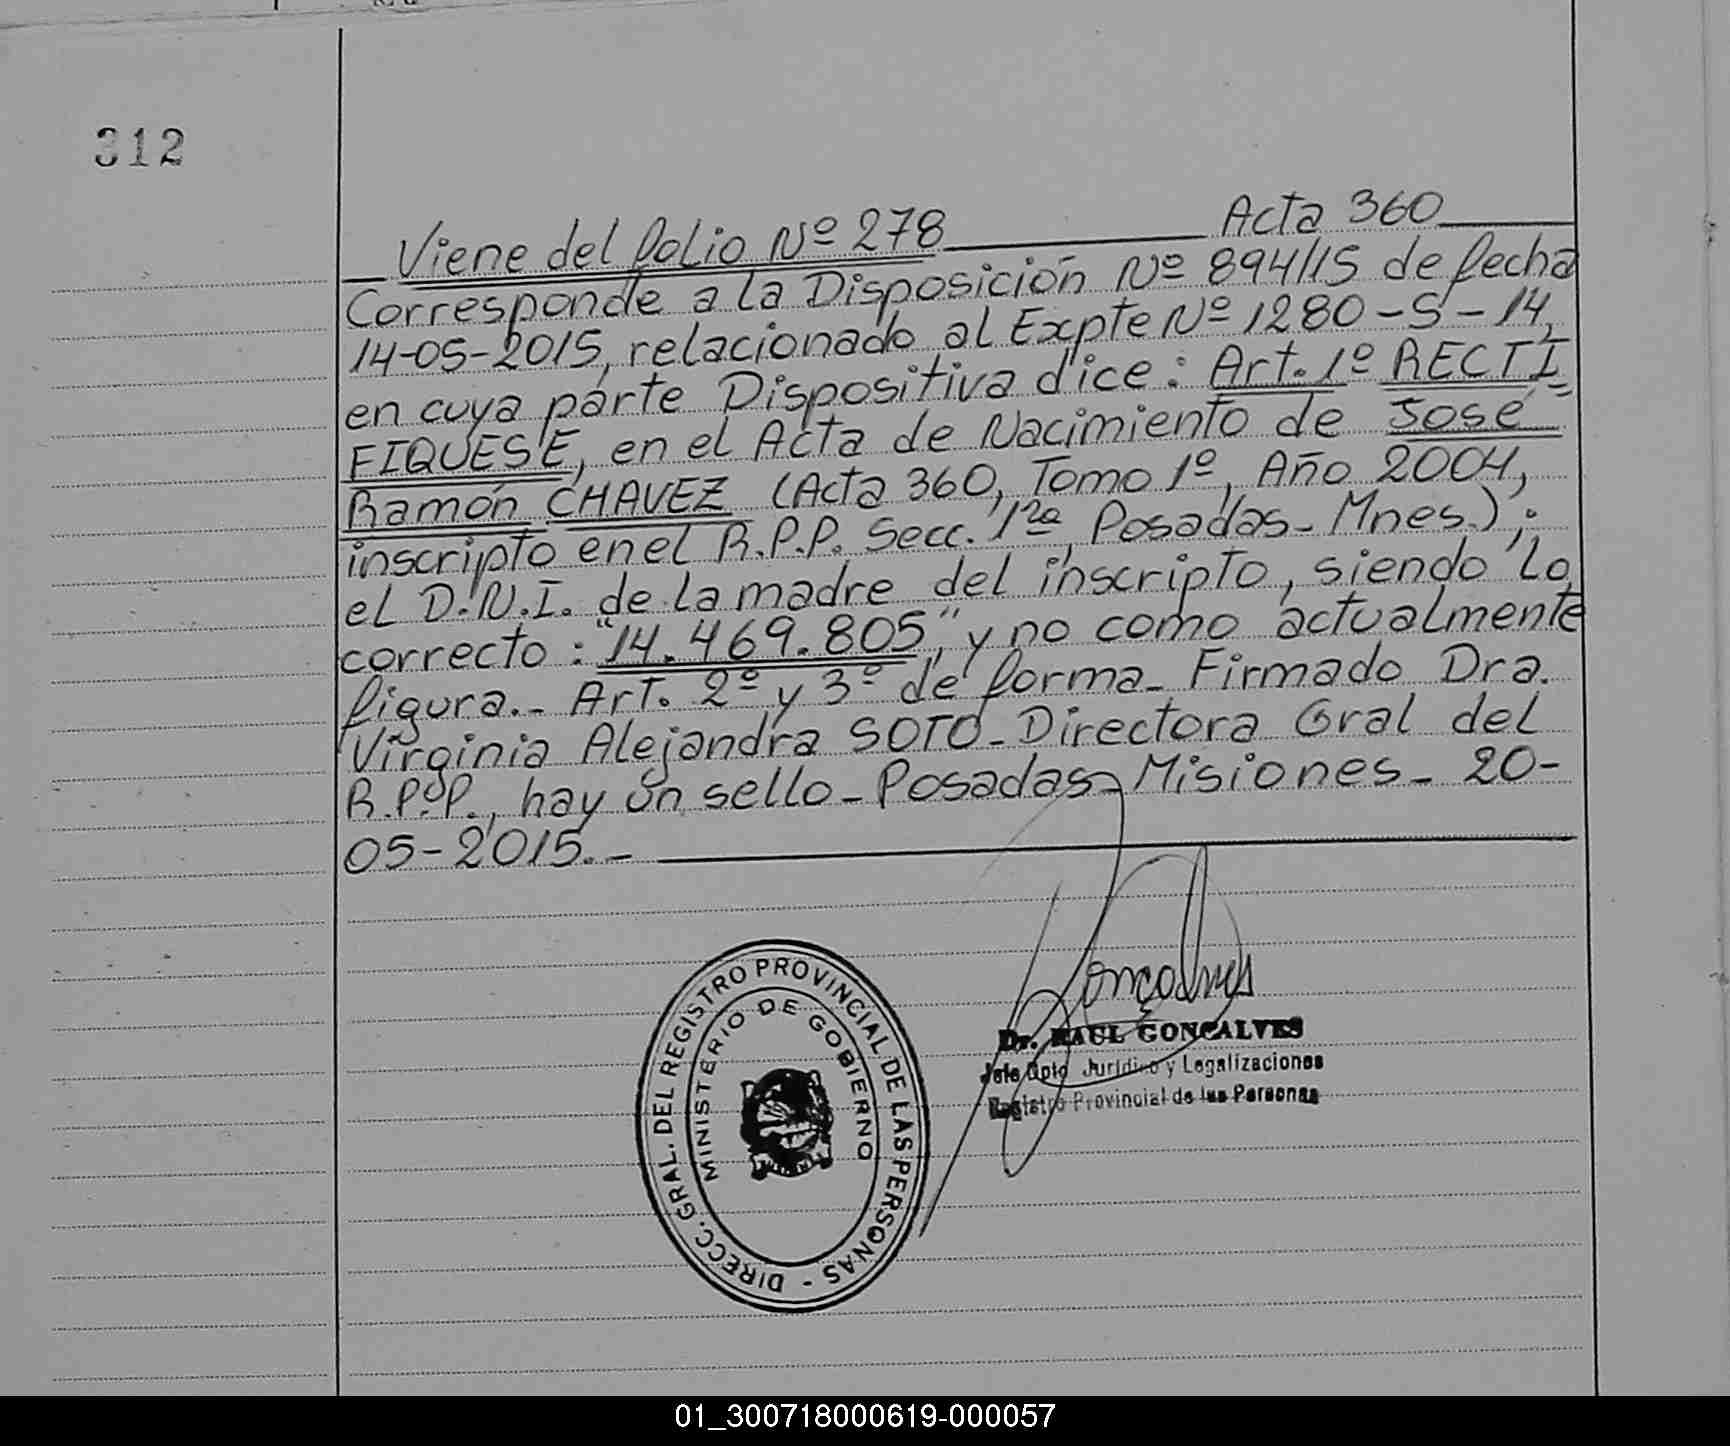 312
Viene del folio Nº 278 Acta 360
Corresponde a la Disposición Nº 894/15 de fecha
14-05-2015, relacionado al Expte Nº 1280-S-14,
en cuya parte Dispositiva dice: Art. 1º RECTI
FIQUESE, en el Acta de Nacimiento de José
Ramón CHAVEZ (Acta 360, Tomo 1º, Año 2004,
inscripto en el R.P.P. Secc. 1ra, Posadas-Mnes.);
el D.N.I. de la madre del inscripto, siendo lo
correcto: "14.469.805", y no como actualmente
figura.- Art. 2º y 3º de forma- Firmado Dra.
Virginia Alejandra SOTO-Directora Gral del
R.P.P., hay un sello-Posadas-Misiones- 20-
05-2015.-
DIRECC. GRAL. DEL REGISTRO PROVINCIAL DE LAS PERSONAS -
MINISTERIO DE GOBIERNO
Goncalves
Dr. RAUL GONCALVES
Jefe Dpto Jurídico y Legalizaciones
Registro Provincial de las Personas
01_300718000619-000057